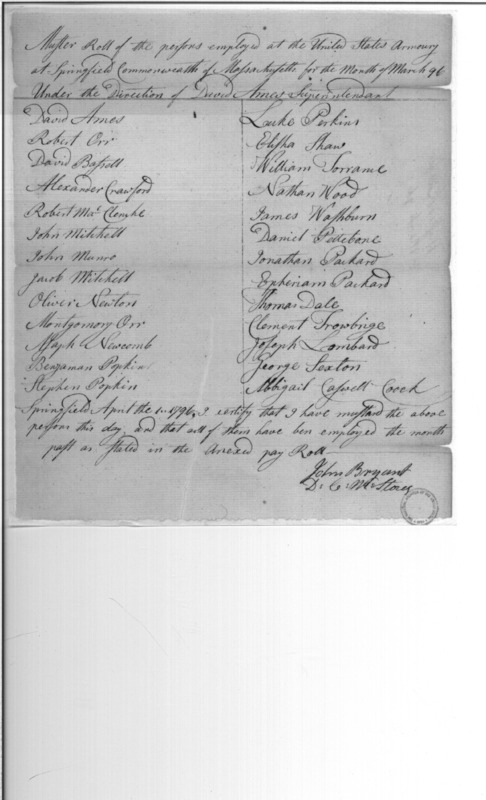 Muster Roll of the persons employed at the United States Armoury
at Springfield Commonwealth of Massachusetts for the Month of March 96
Under the Direction of David Ames Superintendant
David Ames
Robert Orr
David Bassell
Alexander Crawford
Robert Mc Clenhe
John Mitchell
John Munro
Jacob Mitchell
Oliver Newton
Montgomory Orr
Asaph Newcomb
Benjaman Popkin
Stephen Popkin
Luke Perkins
Elisha Shaw
William Torrame
Nathan Wood
James Washburn
Daniel Pettebone
Jonathan Packard
Epheriam Packard
Thomas Dale
Clement Trowbrige
Joseph Lombard
George Sexton
Abbigail Caswell Coock
Springfield April the 1st 1796, I certify that I have mustard the above
persons this day, and that all of them have ben employed the month
past as stated in the anexed pay Roll
John Bryant
D. C. Mr Stores